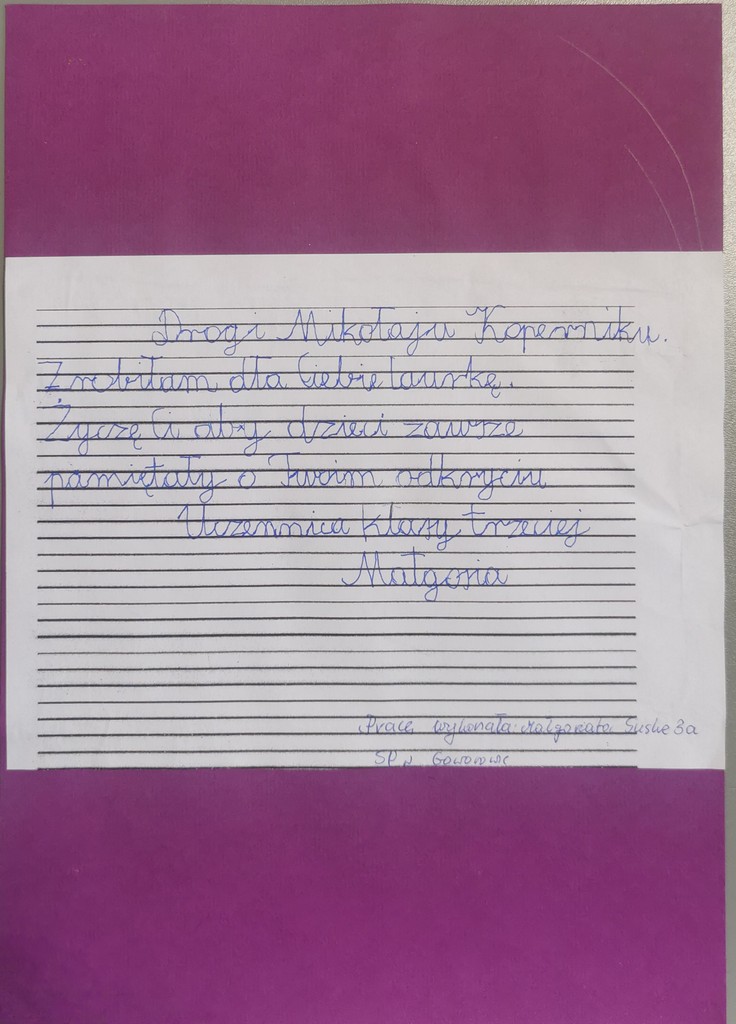 Drogi Mikołaju Koperniku.
Zrobiłam dla Ciebie laurkę.
Życzę Ci aby dzieci zawsze
pamiętały o Twoim odkryciu
Uczennica klasy trzeciej
Małgosia
Pracę wykonała: Małgorzata 3a
SP w Goworowie